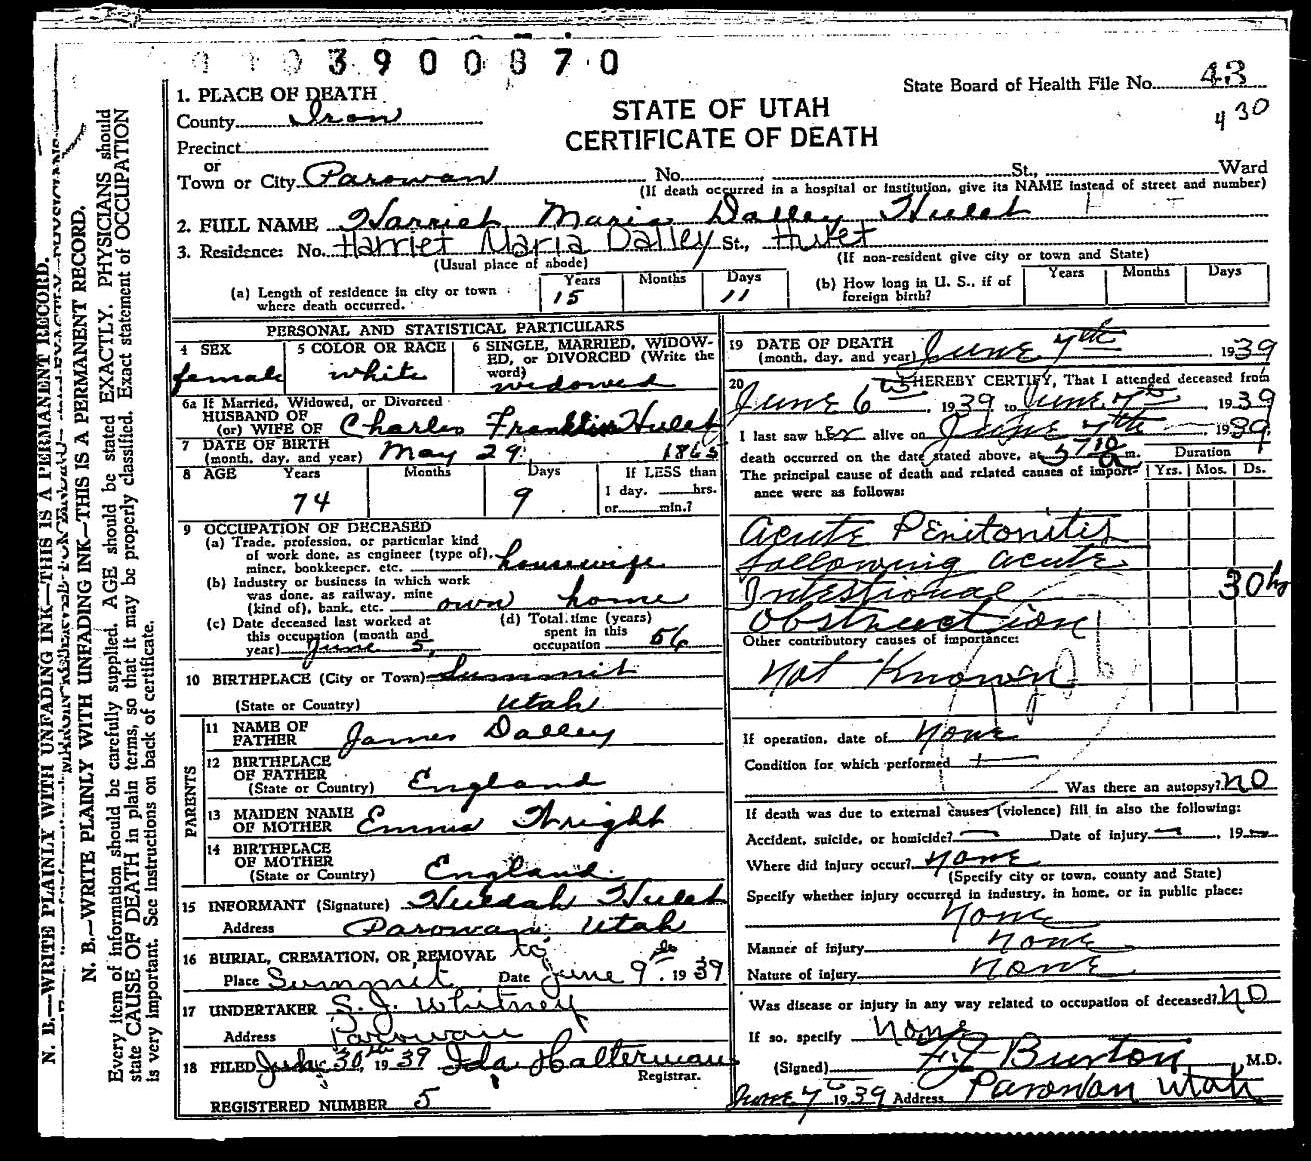 3900870
State Board of Health File No. 43
430
STATE OF UTAH
CERTIFICATE OF DEATH
1. PLACE OF DEATH
County Iron
Precinct
or
Town or City Parowan No. St., Ward
(If death occurred in a hospital or institution, give its NAME instead of street and number)
2. FULL NAME Harriet Maria Dalley Hulet
3. Residence: No. Harriet Maria Dalley St., Hulet
(Usual place of abode) (If non-resident give city or town and State)
(a) Length of residence in city or town where death occurred. Years 15 Months Days 11
(b) How long in U. S., if of foreign birth? Years Months Days
PERSONAL AND STATISTICAL PARTICULARS
4 SEX female
5 COLOR OR RACE white
6 SINGLE, MARRIED, WIDOWED, or DIVORCED (Write the word) widowed
6a If Married, Widowed, or Divorced
HUSBAND OF
(or) WIFE OF Charles Franklin Hulet
7 DATE OF BIRTH
(month, day, and year) May 29 1865
8 AGE Years 74 Months Days 9 If LESS than 1 day, hrs. or min.?
9 OCCUPATION OF DECEASED
(a) Trade, profession, or particular kind
of work done, as engineer (type of),
miner, bookkeeper, etc. housewife
(b) Industry or business in which work
was done, as railway, mine
(kind of), bank, etc. own home
(c) Date deceased last worked at
this occupation (month and
year) June 5,
(d) Total time (years)
spent in this
occupation 56
10 BIRTHPLACE (City or Town) Summit
(State or Country) Utah
PARENTS
11 NAME OF FATHER James Dalley
12 BIRTHPLACE OF FATHER
(State or Country) England
13 MAIDEN NAME OF MOTHER Emma Wright
14 BIRTHPLACE OF MOTHER
(State or Country) England
15 INFORMANT (Signature) Huldah Hulet
Address Parowan Utah
16 BURIAL, CREMATION, OR REMOVAL to
Place Summit Date June 9th 1939
17 UNDERTAKER S. J. Whitney
Address Parowan
18 FILED 30th, 1939 Ida Halterman
Registrar.
REGISTERED NUMBER 5
19 DATE OF DEATH
(month, day, and year) June 7th 1939
20 I HEREBY CERTIFY, That I attended deceased from
June 6th, 1939 to June 7th, 1939
I last saw her alive on June 7th 1939
death occurred on the date stated above, at m.
The principal cause of death and related causes of importance were as follows:
Duration
Yrs. Mos. Ds.
Acute Peritonitis
following acute
Intestional 30 hrs
Obstruction
Other contributory causes of importance:
Not Known
If operation, date of None
Condition for which performed
Was there an autopsy? No
If death was due to external causes (violence) fill in also the following:
Accident, suicide, or homicide? — Date of injury —, 19
Where did injury occur? None
(Specify city or town, county and State)
Specify whether injury occurred in industry, in home, or in public place:
None
Manner of injury None
Nature of injury None
Was disease or injury in any way related to occupation of deceased? No
If so, specify None
(Signed) F J Burton M.D.
June 7 1939 Address Parowan Utah
N. B.—WRITE PLAINLY WITH UNFADING INK—THIS IS A PERMANENT RECORD.
N. B.—WRITE PLAINLY WITH UNFADING INK—THIS IS A PERMANENT RECORD.
Every item of information should be carefully supplied. AGE should be stated EXACTLY. PHYSICIANS should
state CAUSE OF DEATH in plain terms, so that it may be properly classified. Exact statement of OCCUPATION
is very important. See instructions on back of certificate.